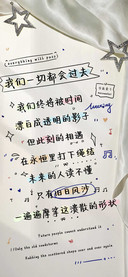 everything will pass
我们一切都会过去
我们终将被时间
漂白成透明的影子
但此刻的相遇
在永恒里打下绳结
未来的人读不懂
只有旧日风沙
一遍遍摩挲溃散的形状
Future people cannot understand it
Only the old sandstorms
Rubbing the scattered shape over and over again